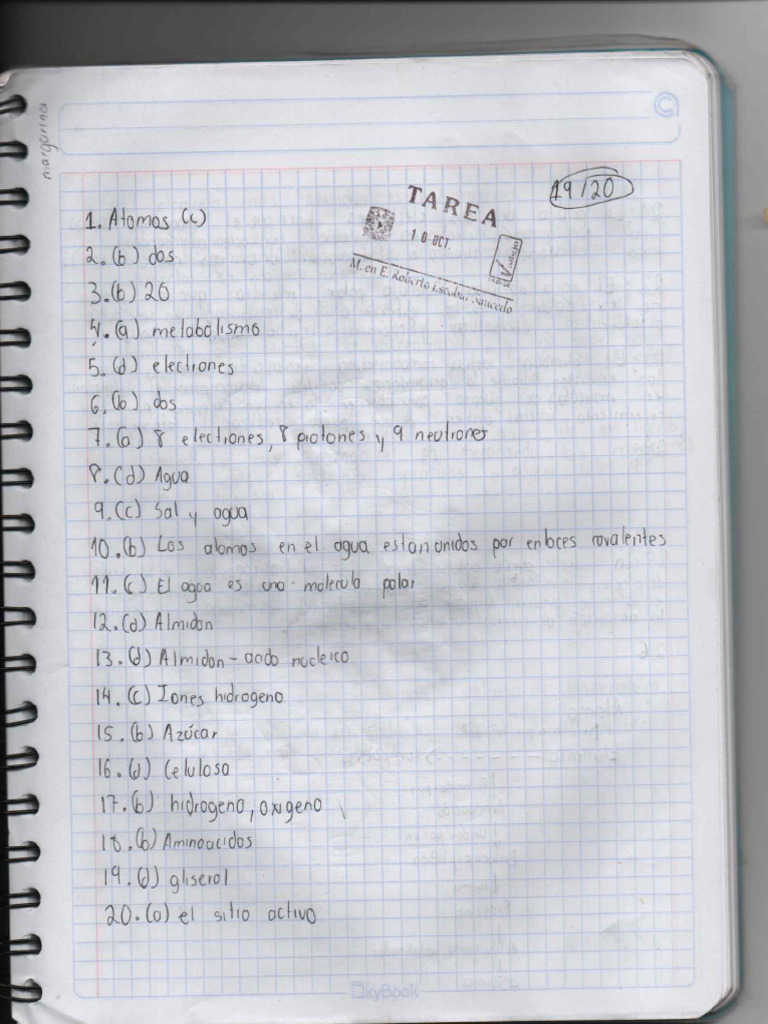 margarina
19/20
TAREA
10 OCT.
M. en E. Roberto Escobar Saucedo
1. Atomos (c)
2. (b) dos
3. (b) 20
4. (a) metabolismo
5. (d) electrones
6. (b) dos
7. (a) 8 electrones, 8 protones y 9 neutrones
8. (d) Agua
9. (c) Sal y agua
10. (b) Los atomos en el agua estan unidos por enlaces covalentes
11. (c) El agua es una molecula polar
12. (d) Almidon
13. (d) Almidon - acido nucleico
14. (c) Iones hidrogeno
15. (b) Azúcar
16. (d) Celulosa
17. (b) hidrogeno, oxigeno
18. (b) Aminoacidos
19. (d) gliserol
20. (a) el sitio activo
SkyBook